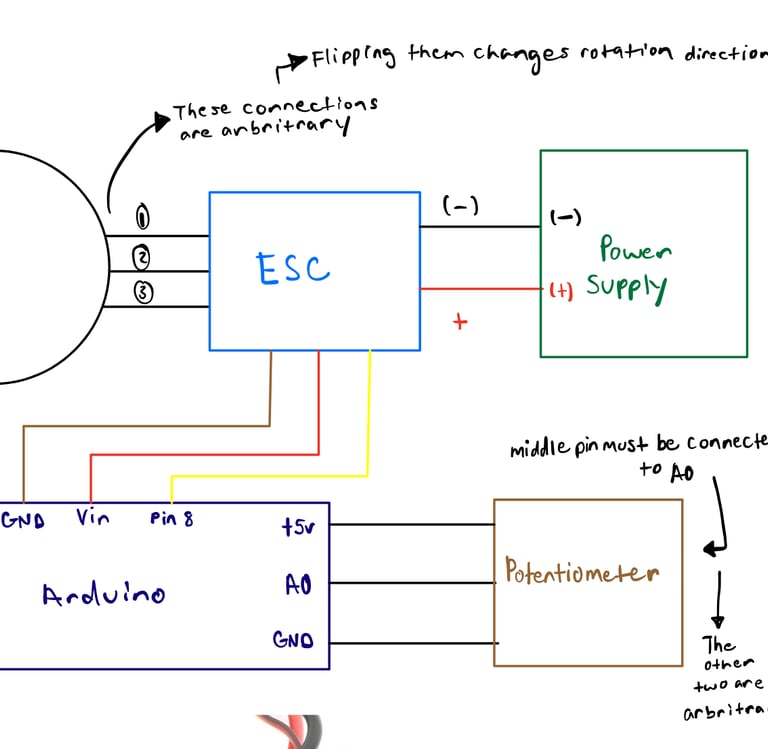 Flipping them changes rotation direction
These connections
are anbritrary
(-)
①
(-)
②
ESC
Power
③
(+) Supply
+
middle pin must be connecte
to A0
GND Vin Pin 8
+5v
Potentiometer
A0
Arduino
GND
The
other
two are
arbritra